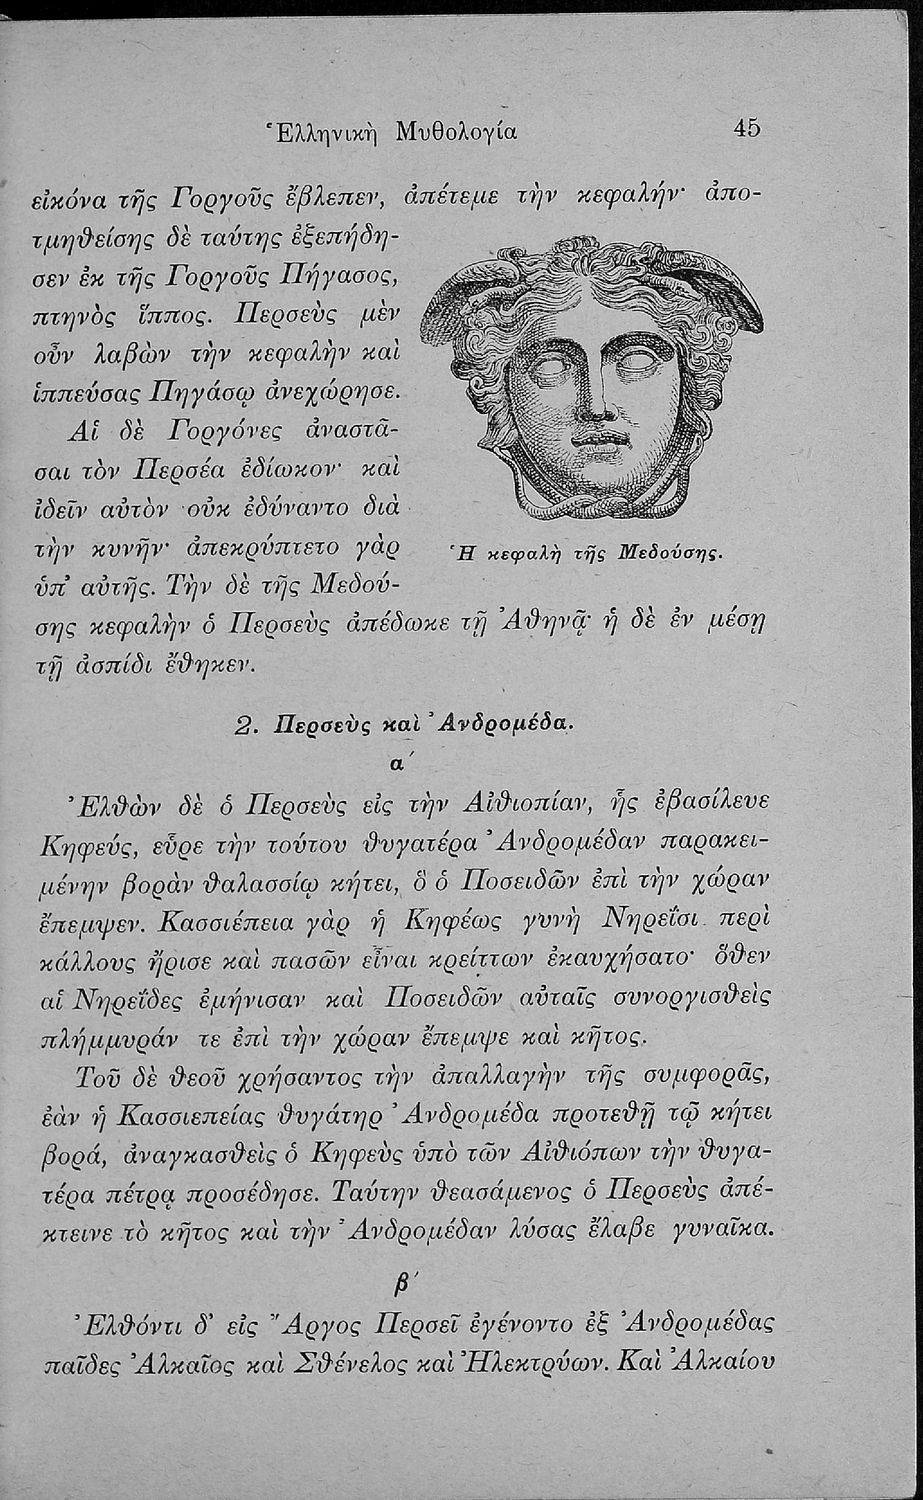 Ἑλληνικὴ Μυθολογία 45
εἰκόνα τῆς Γοργοῦς ἔβλεπεν, ἀπέτεμε τὴν κεφαλήν· ἀπο-
τμηθείσης δὲ ταύτης ἐξεπήδη-
σεν ἐκ τῆς Γοργοῦς Πήγασος,
πτηνὸς ἵππος. Περσεὺς μὲν
οὖν λαβὼν τὴν κεφαλὴν καὶ
ἱππεύσας Πηγάσῳ ἀνεχώρησε.
Αἱ δὲ Γοργόνες ἀναστᾶ-
σαι τὸν Περσέα ἐδίωκον· καὶ
ἰδεῖν αὐτὸν οὐκ ἐδύναντο διὰ
τὴν κυνῆν· ἀπεκρύπτετο γὰρ
ὑπ' αὐτῆς. Τὴν δὲ τῆς Μεδού-
Ἡ κεφαλὴ τῆς Μεδούσης.
σης κεφαλὴν ὁ Περσεὺς ἀπέδωκε τῇ Ἀθηνᾷ· ἡ δὲ ἐν μέσῃ
τῇ ἀσπίδι ἔθηκεν.
2. Περσεὺς καὶ Ἀνδρομέδα.
α΄
Ἐλθὼν δὲ ὁ Περσεὺς εἰς τὴν Αἰθιοπίαν, ἧς ἐβασίλευε
Κηφεύς, εὗρε τὴν τούτου θυγατέρα Ἀνδρομέδαν παρακει-
μένην βορὰν θαλασσίῳ κήτει, ὃ ὁ Ποσειδῶν ἐπὶ τὴν χώραν
ἔπεμψεν. Κασσιέπεια γὰρ ἡ Κηφέως γυνὴ Νηρεΐσι περὶ
κάλλους ἤρισε καὶ πασῶν εἶναι κρείττων ἐκαυχήσατο· ὅθεν
αἱ Νηρεΐδες ἐμήνισαν καὶ Ποσειδῶν αὐταῖς συνοργισθεὶς
πλήμμυράν τε ἐπὶ τὴν χώραν ἔπεμψε καὶ κῆτος.
Τοῦ δὲ θεοῦ χρήσαντος τὴν ἀπαλλαγὴν τῆς συμφορᾶς,
ἐὰν ἡ Κασσιεπείας θυγάτηρ Ἀνδρομέδα προτεθῇ τῷ κήτει
βορά, ἀναγκασθεὶς ὁ Κηφεὺς ὑπὸ τῶν Αἰθιόπων τὴν θυγα-
τέρα πέτρᾳ προσέδησε. Ταύτην θεασάμενος ὁ Περσεὺς ἀπέ-
κτεινε τὸ κῆτος καὶ τὴν Ἀνδρομέδαν λύσας ἔλαβε γυναῖκα.
β΄
Ἐλθόντι δ' εἰς Ἄργος Περσεῖ ἐγένοντο ἐξ Ἀνδρομέδας
παῖδες Ἀλκαῖος καὶ Σθένελος καὶ Ἠλεκτρύων. Καὶ Ἀλκαίου